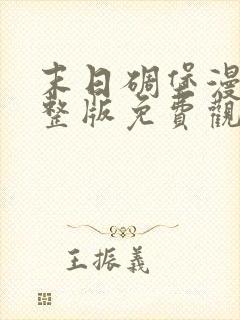 末日碉堡漫
整版免費觀
王振義